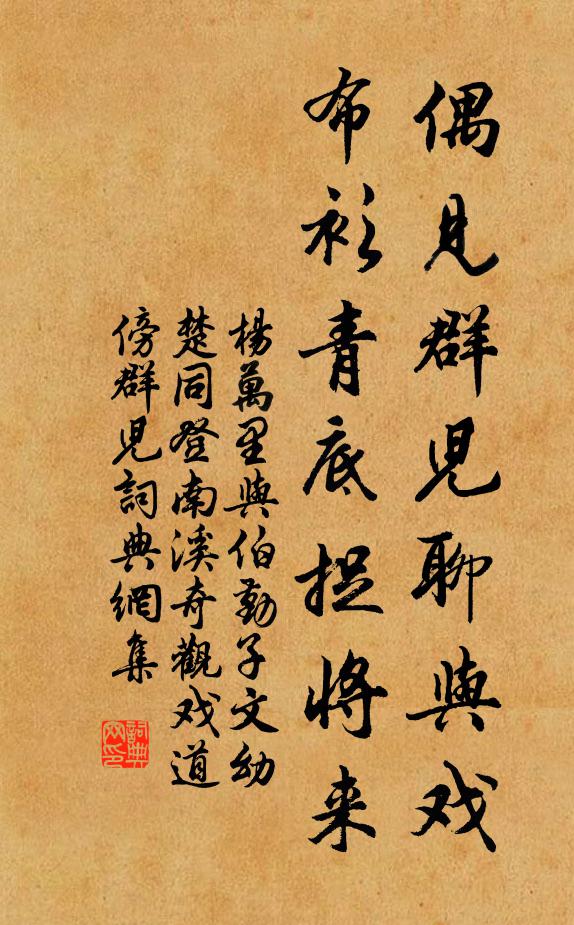 偶見群児聊與戏
布衫青底捉将来
楊萬里與伯勤子文幼
楚同登南溪奇觀戏道
傍群児詞典網集
詞典网印